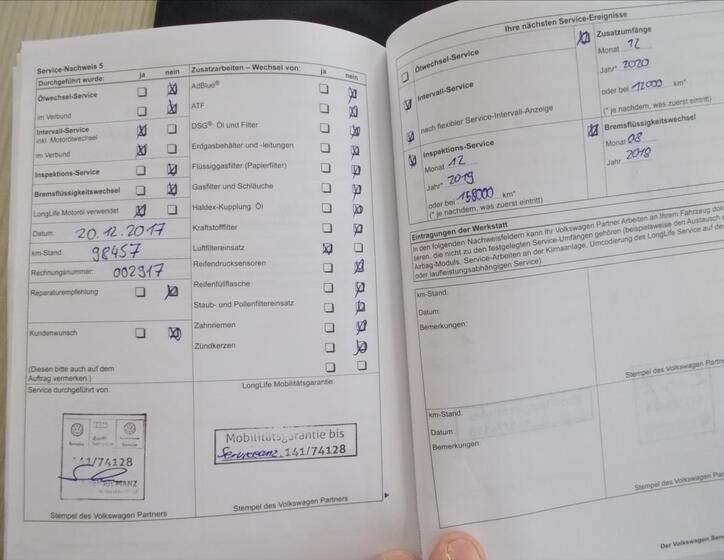 Service-Nachweis 5
Durchgeführt wurde: ja nein
Ölwechsel-Service
im Verbund
Intervall-Service
inkl. Motorölwechsel
im Verbund
Inspektions-Service
Bremsflüssigkeitswechsel
LongLife Motoröl verwendet
Datum: 20.12.2017
km-Stand: 98457
Rechnungsnummer: 002917
Reparaturempfehlung
Kundenwunsch
(Diesen bitte auch auf dem
Auftrag vermerken.)
Service durchgeführt von:
141/74128
Stempel des Volkswagen Partners
Zusatzarbeiten – Wechsel von: ja nein
AdBlue®
ATF
DSG®: Öl und Filter
Erdgasbehälter und -leitungen
Flüssiggasfilter (Papierfilter)
Gasfilter und Schläuche
Haldex-Kupplung: Öl
Kraftstofffilter
Luftfiltereinsatz
Reifendrucksensoren
Reifenfüllflasche
Staub- und Pollenfiltereinsatz
Zahnriemen
Zündkerzen
LongLife Mobilitätsgarantie:
Mobilitätsgarantie bis
Serviceanz. 141/74128
Stempel des Volkswagen Partners
Ihre nächsten Service-Ereignisse
Ölwechsel-Service
Intervall-Service
nach flexibler Service-Intervall-Anzeige
Inspektions-Service
Monat 12
Jahr* 2019
oder bei 158000 km*
(* je nachdem, was zuerst eintritt)
Zusatzumfänge
Monat 12
Jahr* 2020
oder bei 12000 km*
(* je nachdem, was zuerst eintritt)
Bremsflüssigkeitswechsel
Monat 08
Jahr 2018
Eintragungen der Werkstatt
In den folgenden Nachweisfeldern kann Ihr Volkswagen Partner Arbeiten an Ihrem Fahrzeug
die nicht zu den festgelegten Service-Umfängen gehören (beispielsweise den Austausch
Airbag-Moduls, Service-Arbeiten an der Klimaanlage, Umcodierung des LongLife Service auf
oder laufleistungsabhängigen Service).
km-Stand:
Datum:
Bemerkungen:
Stempel des Volkswagen
km-Stand:
Datum:
Bemerkungen:
Stempel des Volkswagen
Der Volkswagen